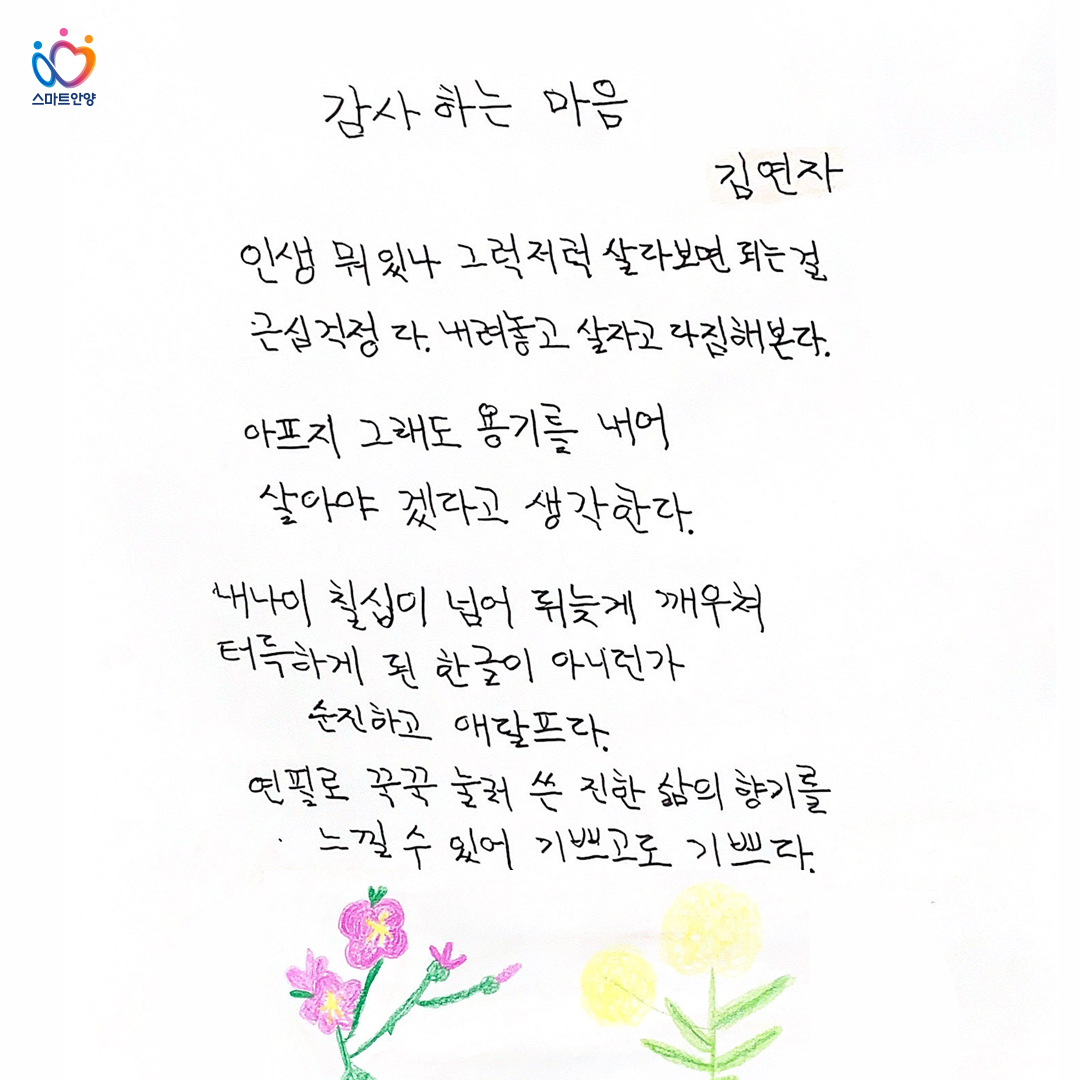 스마트안양
감사하는 마음
김연자
인생 뭐 있나 그럭저럭 살다보면 되는걸
근심걱정 다. 내려놓고 살자고 다짐해본다.
아프지 그래도 용기를 내어
살아야 겠다고 생각한다.
내나이 칠십이 넘어 뒤늦게 깨우쳐
터득하게 된 한글이 아니런가
순진하고 애달프다.
연필로 꾹꾹 눌러 쓴 진한 삶의 향기를
느낄 수 있어 기쁘고도 기쁘다.